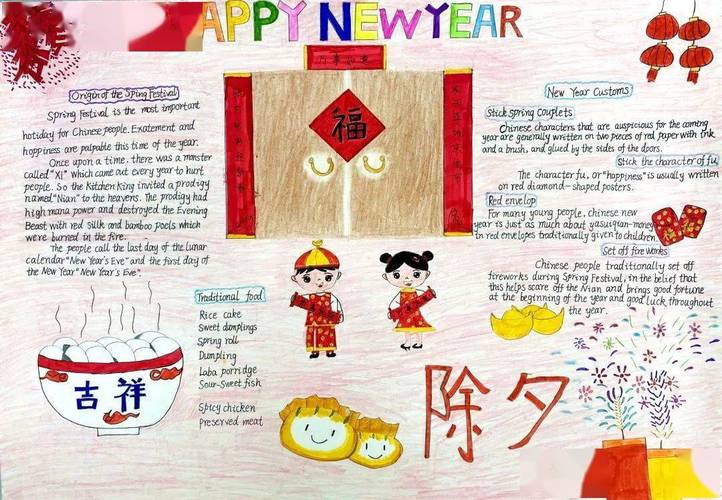 APPY NEW YEAR
Origin of the Sping Festival
Spring Festival is the most important
hotiday for Chinese people. Exatement and
hoppiness are palpable this time of the year.
Once upon a time, there was a monster
called "Xi" which came out every year to hurt
people. So the Kitchen King invited a prodigy
named "Nian" to the heavens. The prodigy had
high mana power and destroyed the Evening
Beast with red silk and bamboo pools which
were burned in the fire.
The people call the last day of the lunar
calendar "New Year's Eve" and the first day of
the New Year "New Year's Eve".
福
Traditional food
Rice cake
Sweet dumplings
Spring roll
Dumpling
Laba porridge
Sour-Sweet fish
Spicy chicken
Preserved meat
吉祥
New Year Customs
Stick Spring Couplets
Chinese characters that are auspicious for the coming
year are generally written on two pieces of red paper with ink
and a brush, and glued by the sides of the doors.
Stick the character of fu
The character fu, or "happiness" is usually written
on red diamond-shaped posters.
Red envelop
For many young people, chinese new
year is just as much about yasuqian-money
in red envelopes traditionally given to children.
Set off fireworks
Chinese people traditionally set off
fireworks during Spring Festival, in the belief that
this helps scare off the Nian and brings good fortune
at the beginning of the year and good luck throughout
the year.
除夕